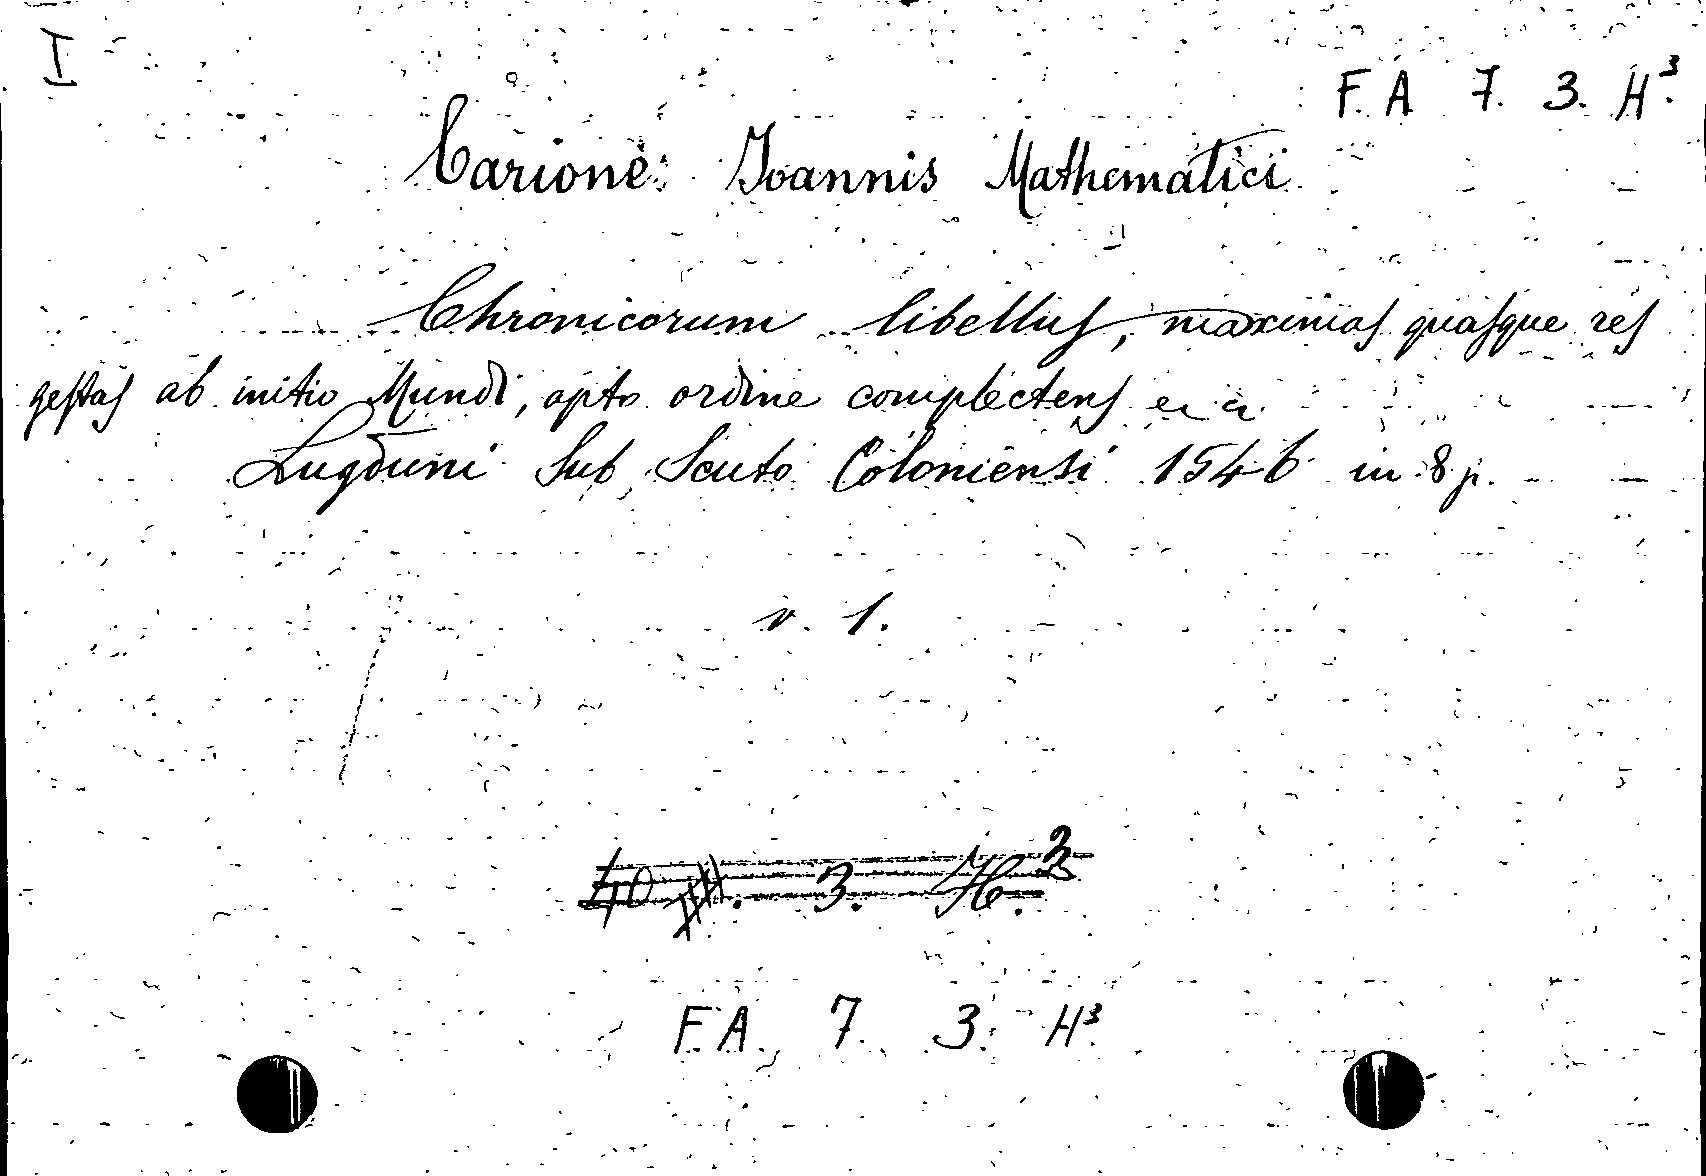 I
F. A 7. 3. H³.
Carione: Joannis Mathematici
Chronicorum libellus, maximas quasque res
gestas ab initio Mundi, apto ordine complectens
Lugduni Sub Scuto Coloniensi 1546 in 8 p.
v. 1.
3. H.³
F. A. 7. 3. H³.